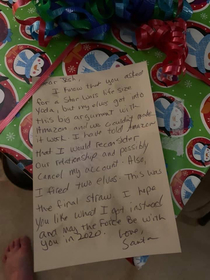 Dear Jack,
I know that you asked
for a Star Wars life size
Yoda, but my elves got into
this big argument with
Amazon and we couldn't make
it work. I have told Amazon
that I would reconsider
our relationship and possibly
cancel my account. Also,
I fired two elves. This was
the final straw. I hope
you like what I got instead
and may the Force be with
you in 2020. Love,
Santa